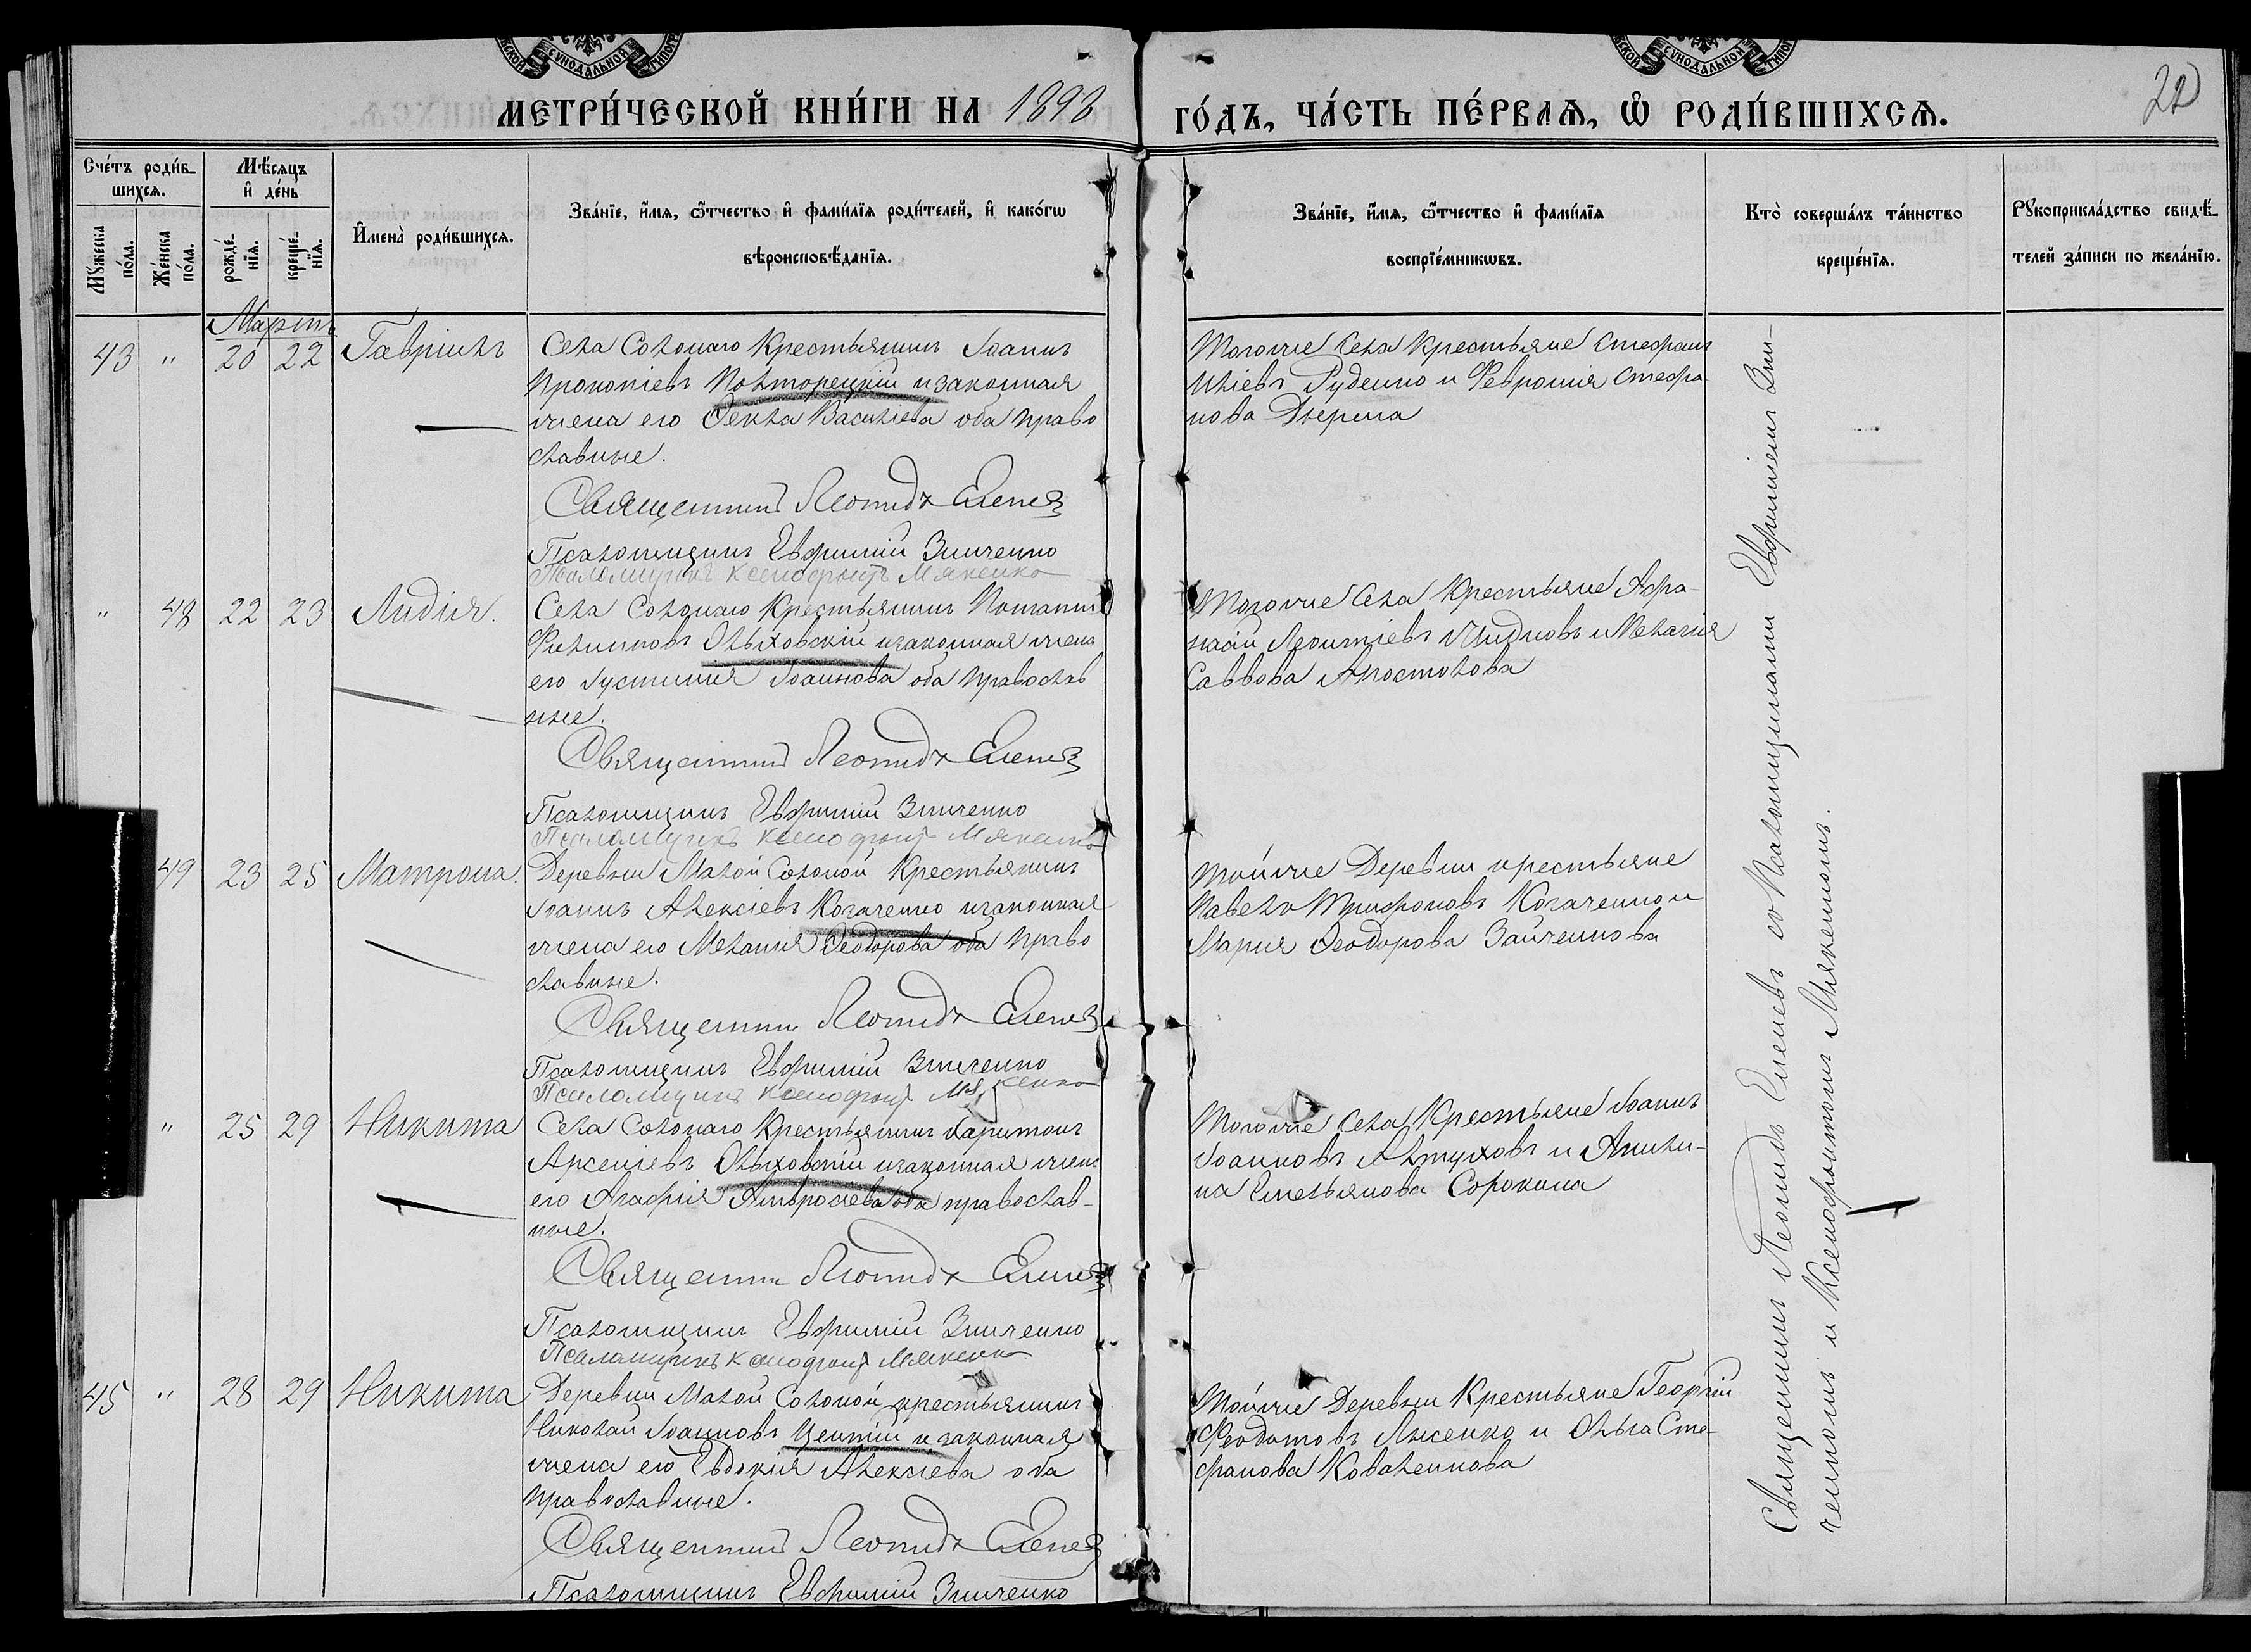 СѴНОДАЛЬНОЙ
СѴНОДАЛЬНОЙ
МЕТРИ́ЧЕСКОЙ КНИ́ГИ НА 1898
ГО́ДЪ, ЧА́СТЬ ПЕ́РВАѦ, Ѡ҆ РОДИ́ВШИХСѦ.
22
Сче́тъ роди́в-
шихсѧ.
Мꙋ́жеска по́ла.
Же́нска по́ла.
Мѣ́сѧцъ
и҆ де́нь
рожде́-
нїѧ.
креще́-
нїѧ.
И҆мена̀ роди́вшихсѧ.
Зва́нїе, и҆́мѧ, ѻ҆́тчество и҆ фами́лїѧ роди́телей, и҆ како́гѡ
вѣроисповѣ́данїѧ.
Зва́нїе, и҆́мѧ, ѻ҆́тчество и҆ фами́лїѧ
воспрїе́мникѡвъ.
Кто̀ соверша́лъ та́инство
креще́нїѧ.
Рꙋкоприкла́дство свидѣ́-
телей за́писи по жела́нїю.
Мартъ
43 " 20 22 Гавріилъ
Села Солонаго Крестьянинъ Іоаннъ
Прокопіевъ Полторецкій и законная
жена его Ѳекла Васильева оба право
славные.
Священникъ Леонидъ Еленевъ
Псаломщикъ Евфимій Зинченко
Псаломщикъ Ксенофонтъ Мякенко
Тогоже Села Крестьяне Стефанъ
Иліевъ Руденко и Февронія Стефа-
нова
" 48 22 23 Лидія.
Села Солонаго Крестьянинъ
Филиповъ Ольховскій и законная жена
его Іустинія Іоаннова оба православ
ные.
Священникъ Леонидъ Еленевъ
Псаломщикъ Евфимій Зинченко
Псаломщикъ Ксенофонтъ Мякенко
Тогоже Села Крестьяне Афа-
насій Леонтіевъ Жидковъ и Меланія
Саввова Апостолова
49 23 25 Матрона.
Деревни Малой Солоной Крестьянинъ
Іоаннъ Алексіевъ Козаченко и законная
жена его Меланія Ѳеодорова оба право
славные.
Священникъ Леонидъ Еленевъ
Псаломщикъ Евфимій Зинченко
Псаломщикъ Ксенофонтъ Мякенко
Тойже Деревни крестьяне
Павелъ Трифоновъ Козаченко и
Мария Ѳеодорова Зайченкова
" 25 29 Никита
Села Солонаго Крестьянинъ Харитонъ
Арсеніевъ Ольховскій и законная жена
его Агафія Амвросіева оба православ-
ные.
Священникъ Леонидъ Еленевъ
Псаломщикъ Евфимій Зинченко
Псаломщикъ Ксенофонтъ Мякенко
Тогоже Села Крестьяне Іоаннъ
Іоанновъ Алтуховъ и Акили-
на Емельянова Сорокина
45 " 28 29 Никита
Деревни Малой Солоной крестьянинъ
Николай Іоанновъ и законная
жена его Евдокія Алексіева оба
православные.
Священникъ Леонидъ Еленевъ
Псаломщикъ Евфимій Зинченко
Тойже Деревни Крестьяне Георгій
Феодотовъ Лысенко и Ольга Сте-
фанова Коваленкова
Священникъ Леонидъ Еленевъ со Псаломщиками Евфиміемъ Зин-
ченкомъ и Ксенофонтомъ Мякенкомъ.